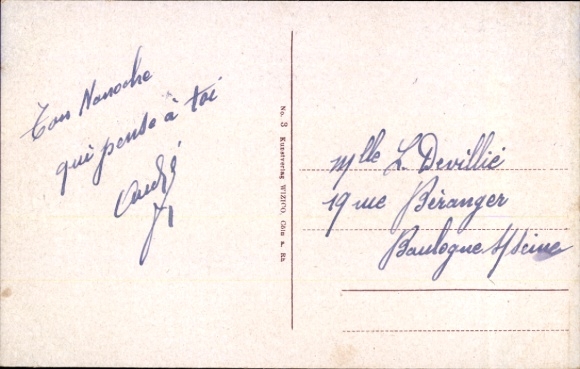 Ton Nanoche
qui pense à toi
André
No. 3 Kunstverlag WIZICO, Cöln a. Rh
Mlle L. Devillié
19 rue Béranger
Boulogne s/Seine